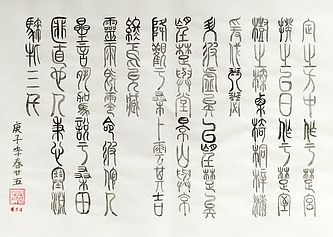 定之方中作于楚宮
揆之以日作于楚室
樹之榛栗椅桐梓漆
爰伐琴瑟
升彼虛矣以望楚矣
望楚與堂景山與京
降觀于桑卜云其吉
終然允臧
靈雨既零命彼倌人
星言夙駕說于桑田
匪直也人秉心塞淵
騋牝三千
庚子年春廿五